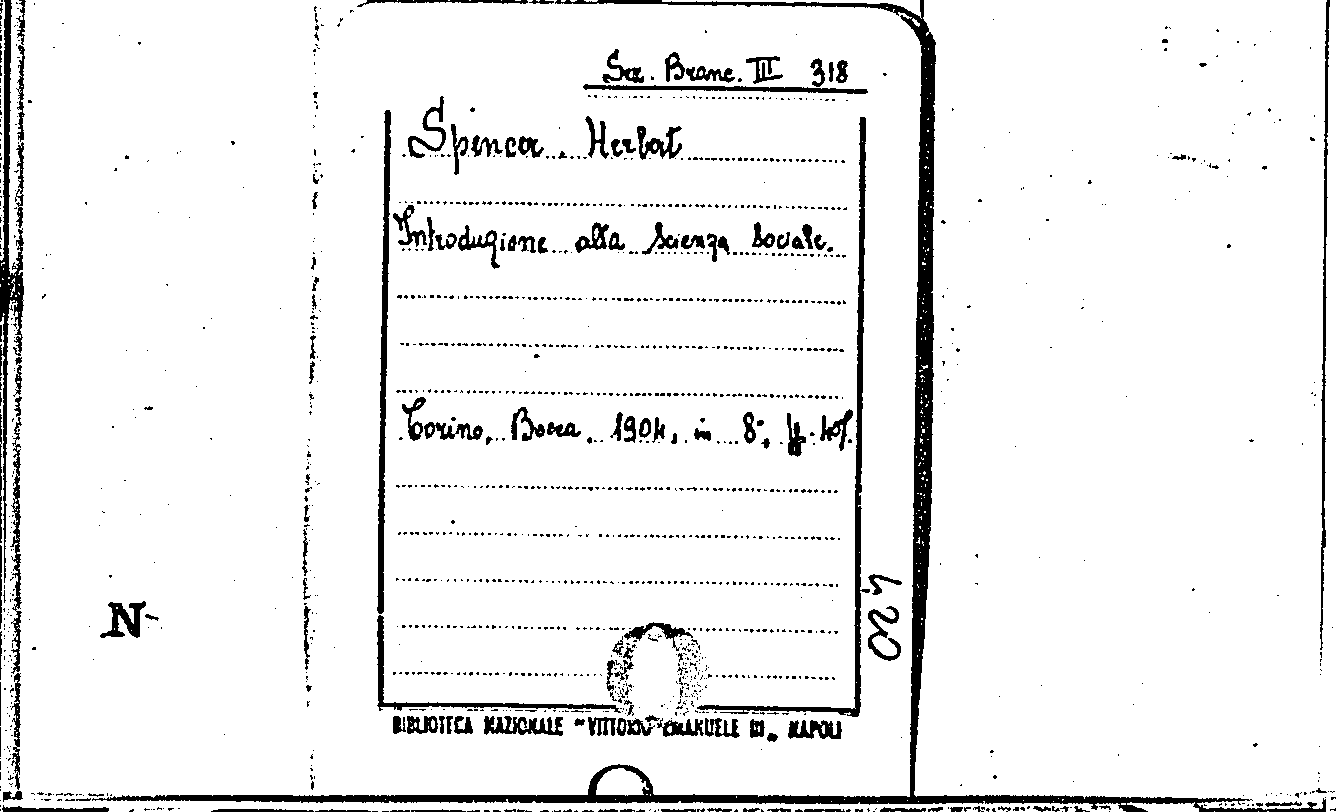 Sez. Branc. III 318
Spencer. Herbert
Introduzione alla Scienza Sociale.
Torino, Bocca, 1904, in 8°,
420
N
BIBLIOTECA NAZIONALE "VITTORIO EMANUELE III" NAPOLI